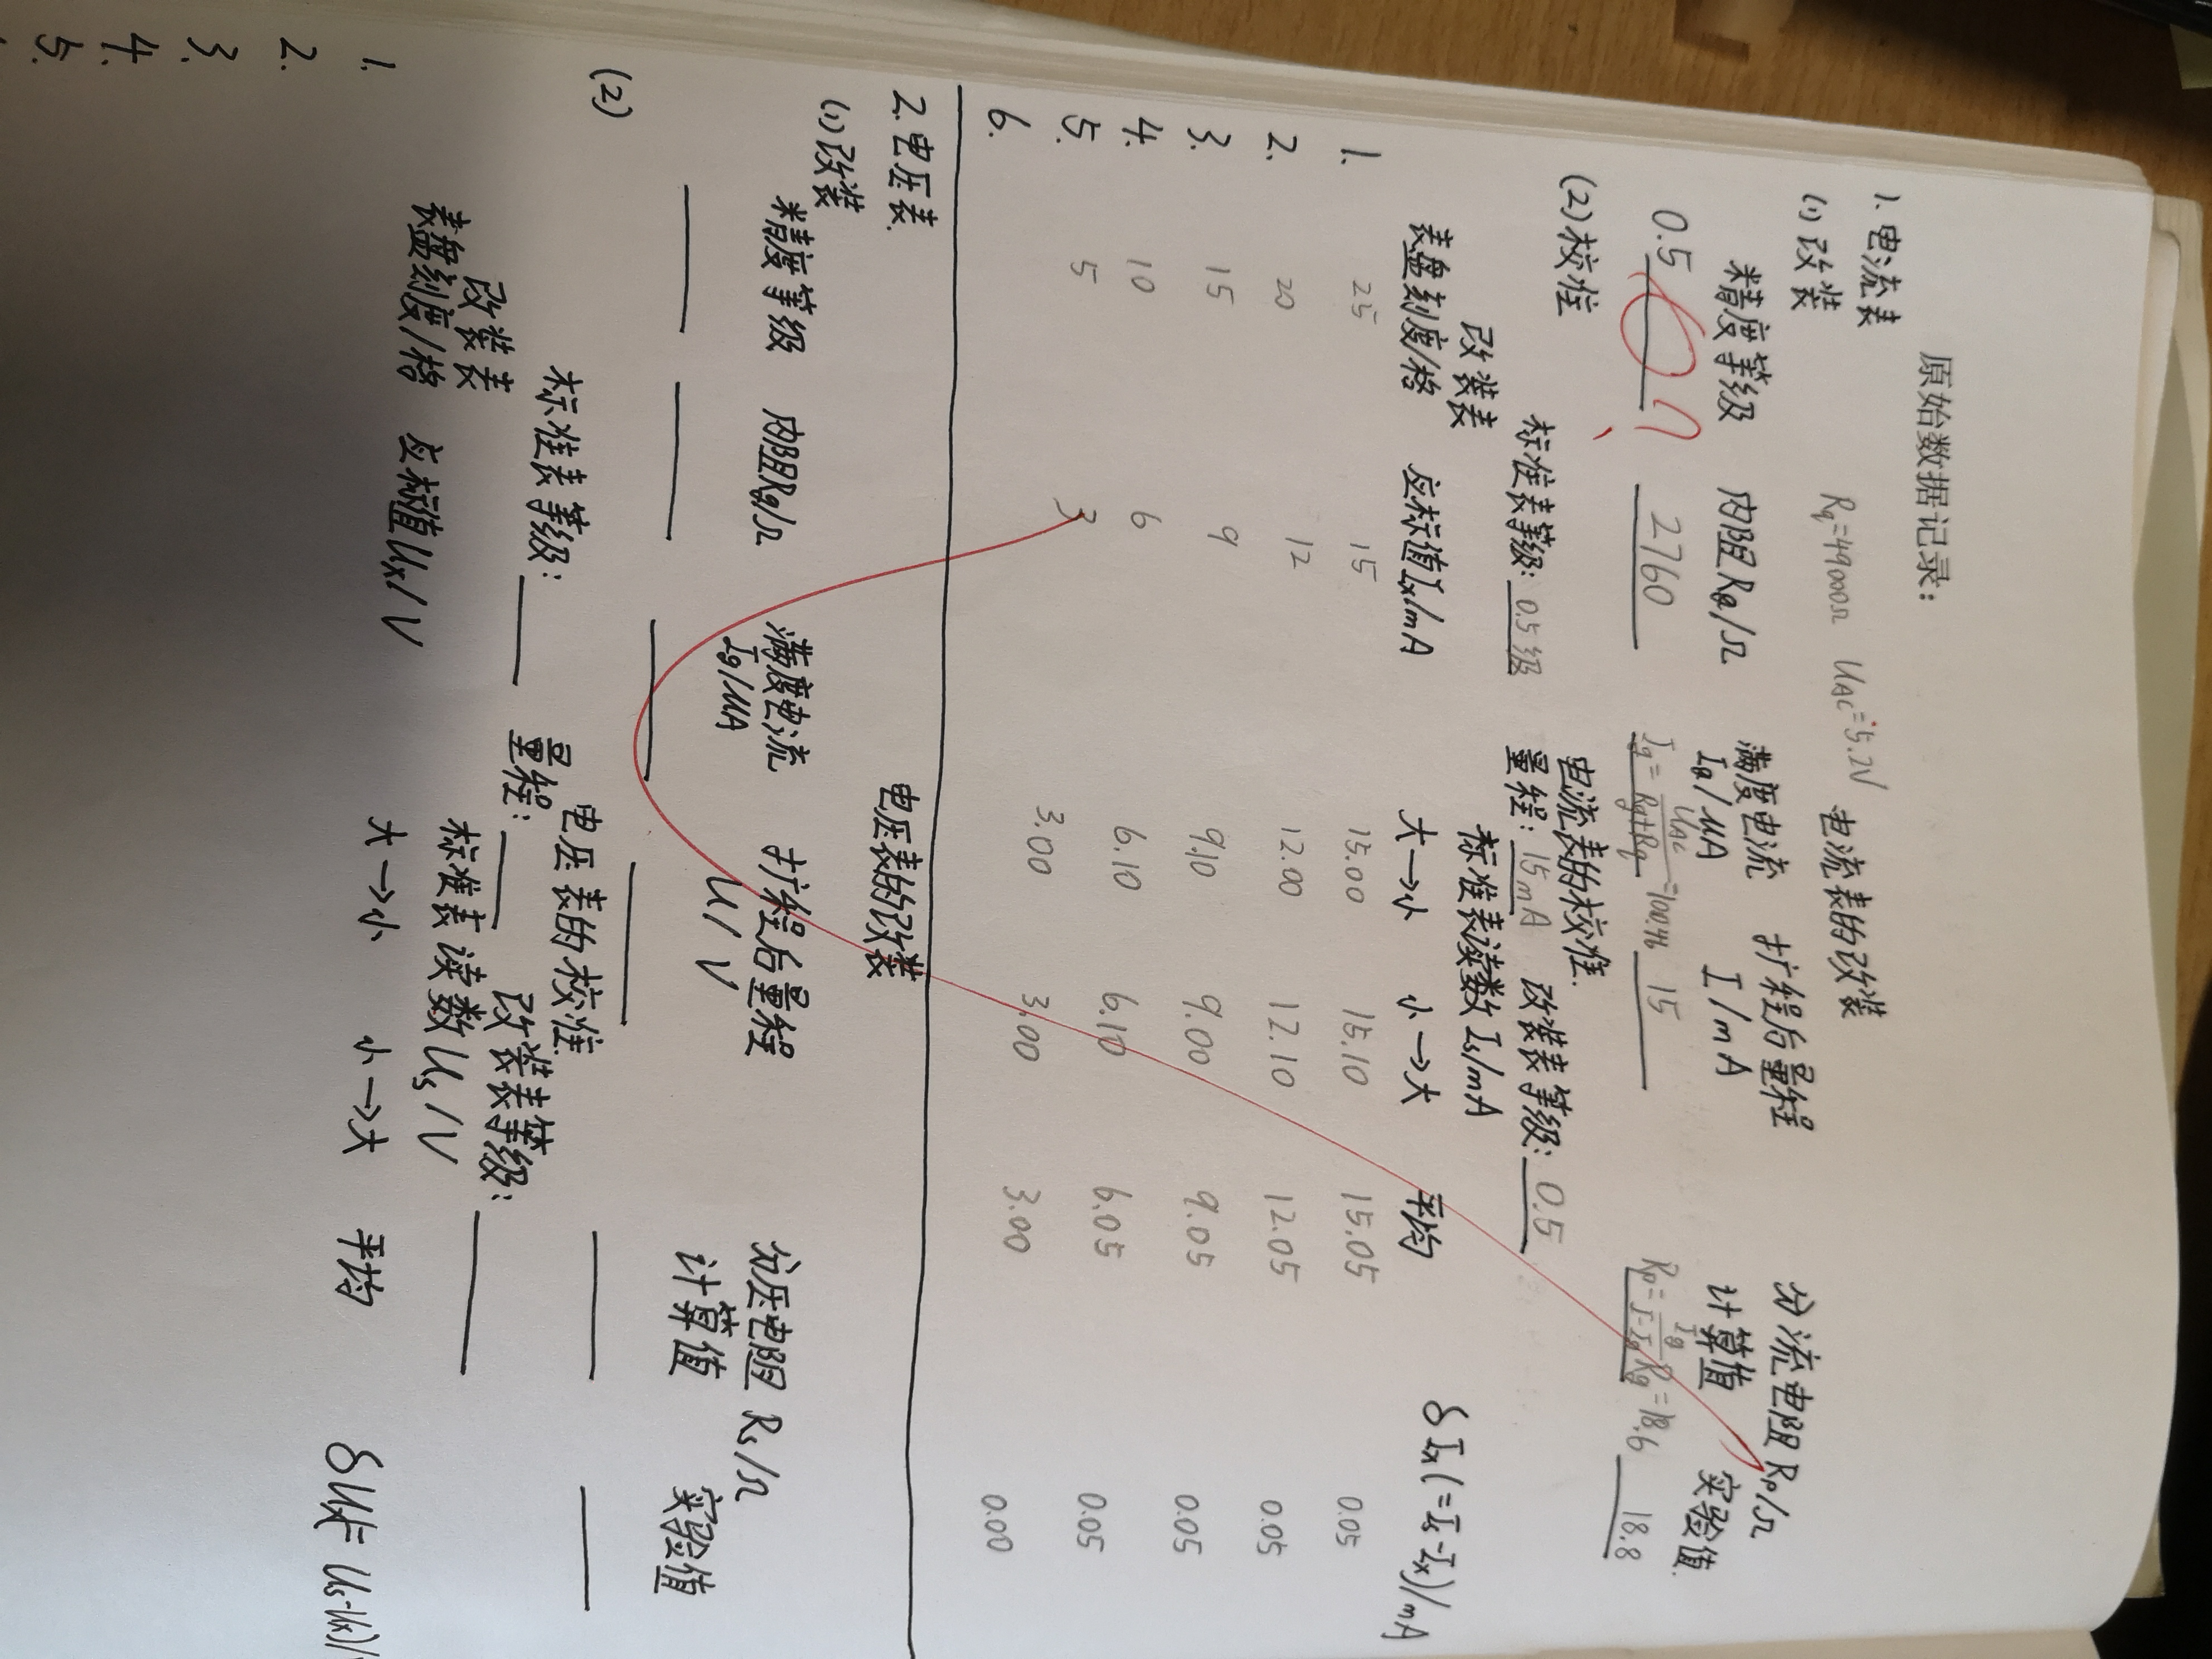 原始数据记录：
1.电流表 Rq=49000Ω UAC=5.2V 电流表的改装
(1)改装
精度等级 内阻Rg/Ω 满度电流Ig/μA 扩程后量程I/mA 分流电阻Rp/Ω
计算值 实验值
0.5 2760 Ig=UAC/(Rq+Rg)=100.46 15 Rp=Ig/(I-Ig)Rg=18.6 18.8
(2)校准 电流表的校准
标准表等级：0.5级 量程：15mA 改装表等级：0.5
改装表 标准表读数Is/mA
表盘刻度/格 应标值Ix/mA 大→小 小→大 平均 δIx(=Is-Ix)/mA
1. 25 15 15.00 15.10 15.05 0.05
2. 20 12 12.00 12.10 12.05 0.05
3. 15 9 9.10 9.00 9.05 0.05
4. 10 6 6.10 6.10 6.05 0.05
5. 5 3 3.00 3.00 3.00 0.00
6.
2.电压表 电压表的改装
(1)改装
精度等级 内阻Rg/Ω 满度电流Ig/μA 扩程后量程U/V 分压电阻Rs/Ω
计算值 实验值
(2) 电压表的校准
标准表等级： 量程： 改装表等级：
改装表 标准表读数Us/V
表盘刻度/格 应标值Ux/V 大→小 小→大 平均 δUx=Us-Ux)/
1.
2.
3.
4.
5.